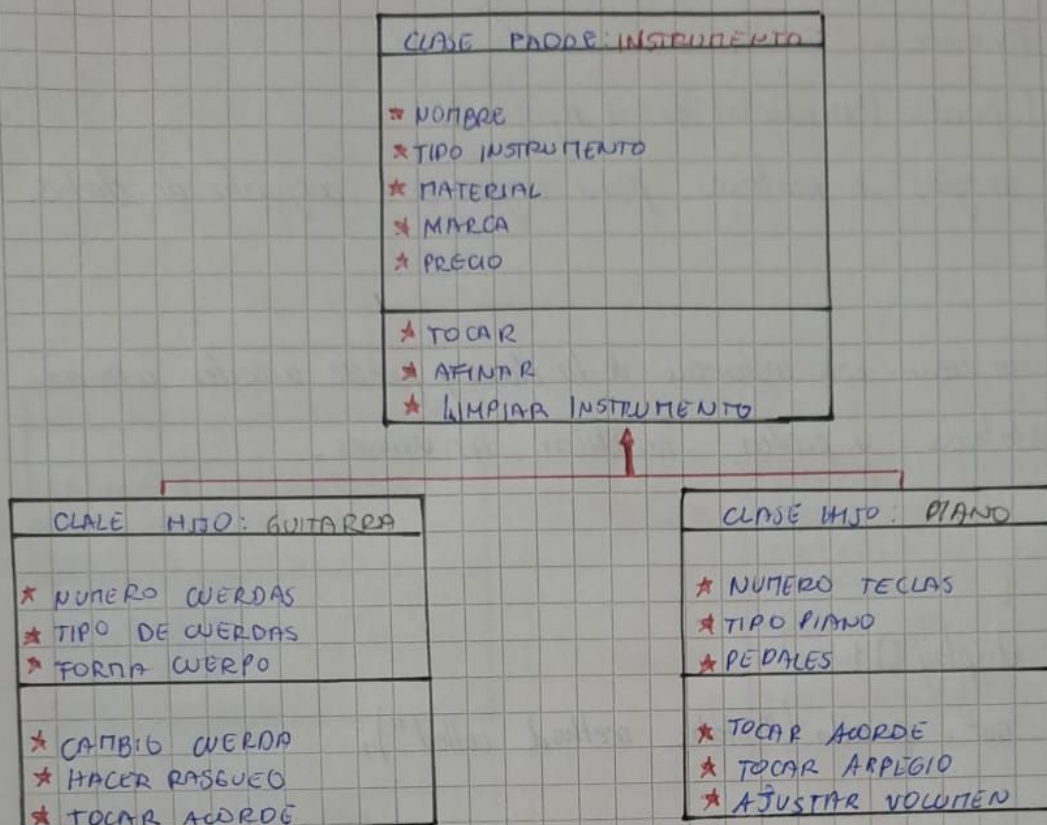 CLASE PADRE: INSTRUMENTO
* NOMBRE
* TIPO INSTRUMENTO
* MATERIAL
* MARCA
* PRECIO
* TOCAR
* AFINAR
* LIMPIAR INSTRUMENTO
CLALE HIJO: GUITARRA
* NUMERO CUERDAS
* TIPO DE CUERDAS
* FORMA CUERPO
* CAMBIO CUERDA
* HACER RASGUEO
* TOCAR ACORDE
CLASE HIJO: PIANO
* NUMERO TECLAS
* TIPO PIANO
* PEDALES
* TOCAR ACORDE
* TOCAR ARPEGIO
* AJUSTAR VOLUMEN